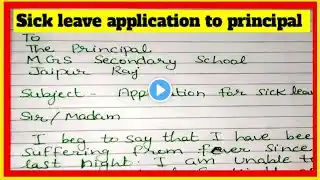 Sick leave application to principal
To
The Principal
M.G.S Secondary School
Jaipur Raj
Subject - Application for sick leav
Sir/Madam
I beg to say that I have bee
suffering from fever since
last night. I am unable t